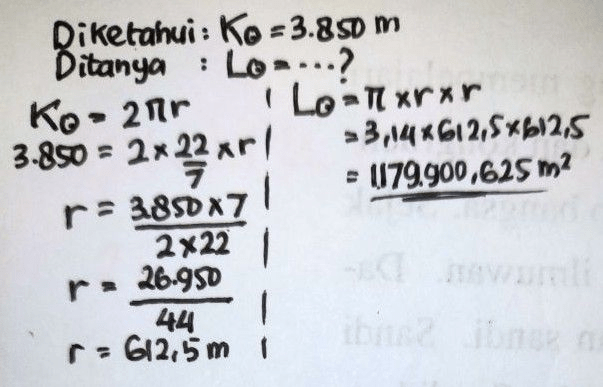 Diketahui : K⊙ = 3.850 m
Ditanya : L⊙ = ...?
K⊙ = 2πr
3.850 = 2 × 22/7 × r
r = 3.850 × 7 / 2 × 22
r = 26.950 / 44
r = 612,5 m
L⊙ = π × r × r
= 3,14 × 612,5 × 612,5
= 1.179.900,625 m²